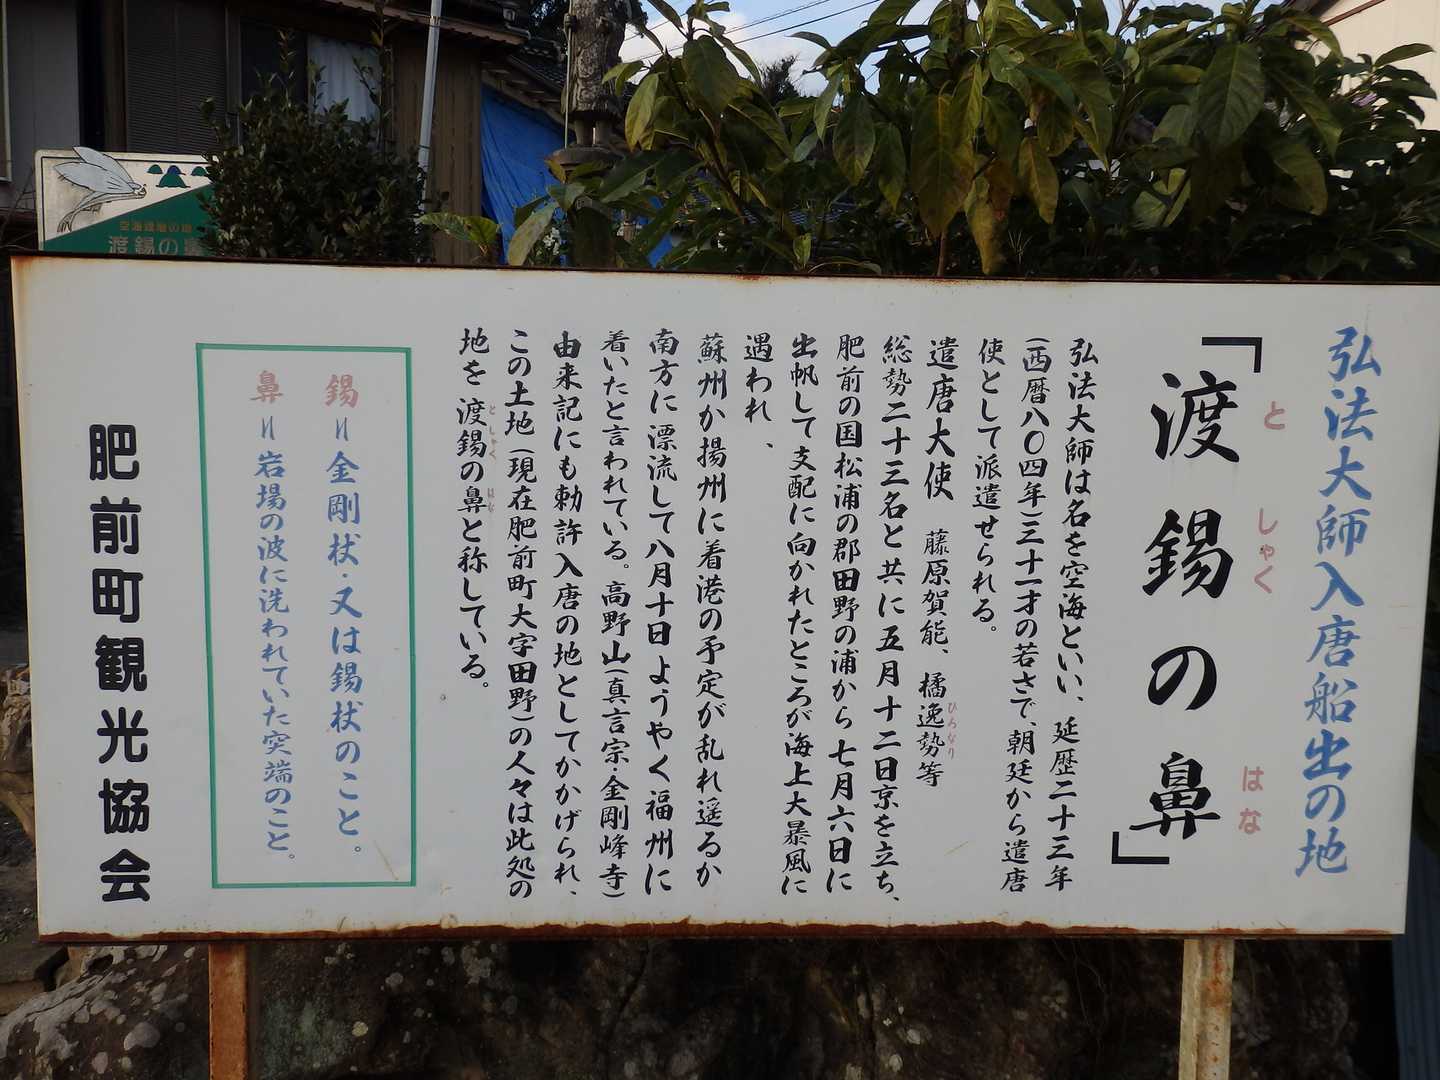 弘法大師入唐船出の地
「渡錫の鼻」
と しゃく はな
弘法大師は名を空海といい、延歴二十三年
(西暦八〇四年)三十一才の若さで、朝廷から遣唐
使として派遣せられる。
遣唐大使 藤原賀能、橘逸勢等
ひろなり
総勢二十三名と共に五月十二日京を立ち、
肥前の国松浦の郡田野の浦から七月六日に
出帆して支配に向かれたところが海上大暴風に
遇われ、
蘇州か揚州に着港の予定が乱れ遥るか
南方に漂流して八月十日ようやく福州に
着いたと言われている。高野山(真言宗・金剛峰寺)
由来記にも勅許入唐の地としてかかげられ、
この土地(現在肥前町大字田野)の人々は此処の
地を渡錫の鼻と称している。
と しゃく はな
錫=金剛杖・又は錫杖のこと。
鼻=岩場の波に洗われていた突端のこと。
肥前町観光協会
渡錫の鼻